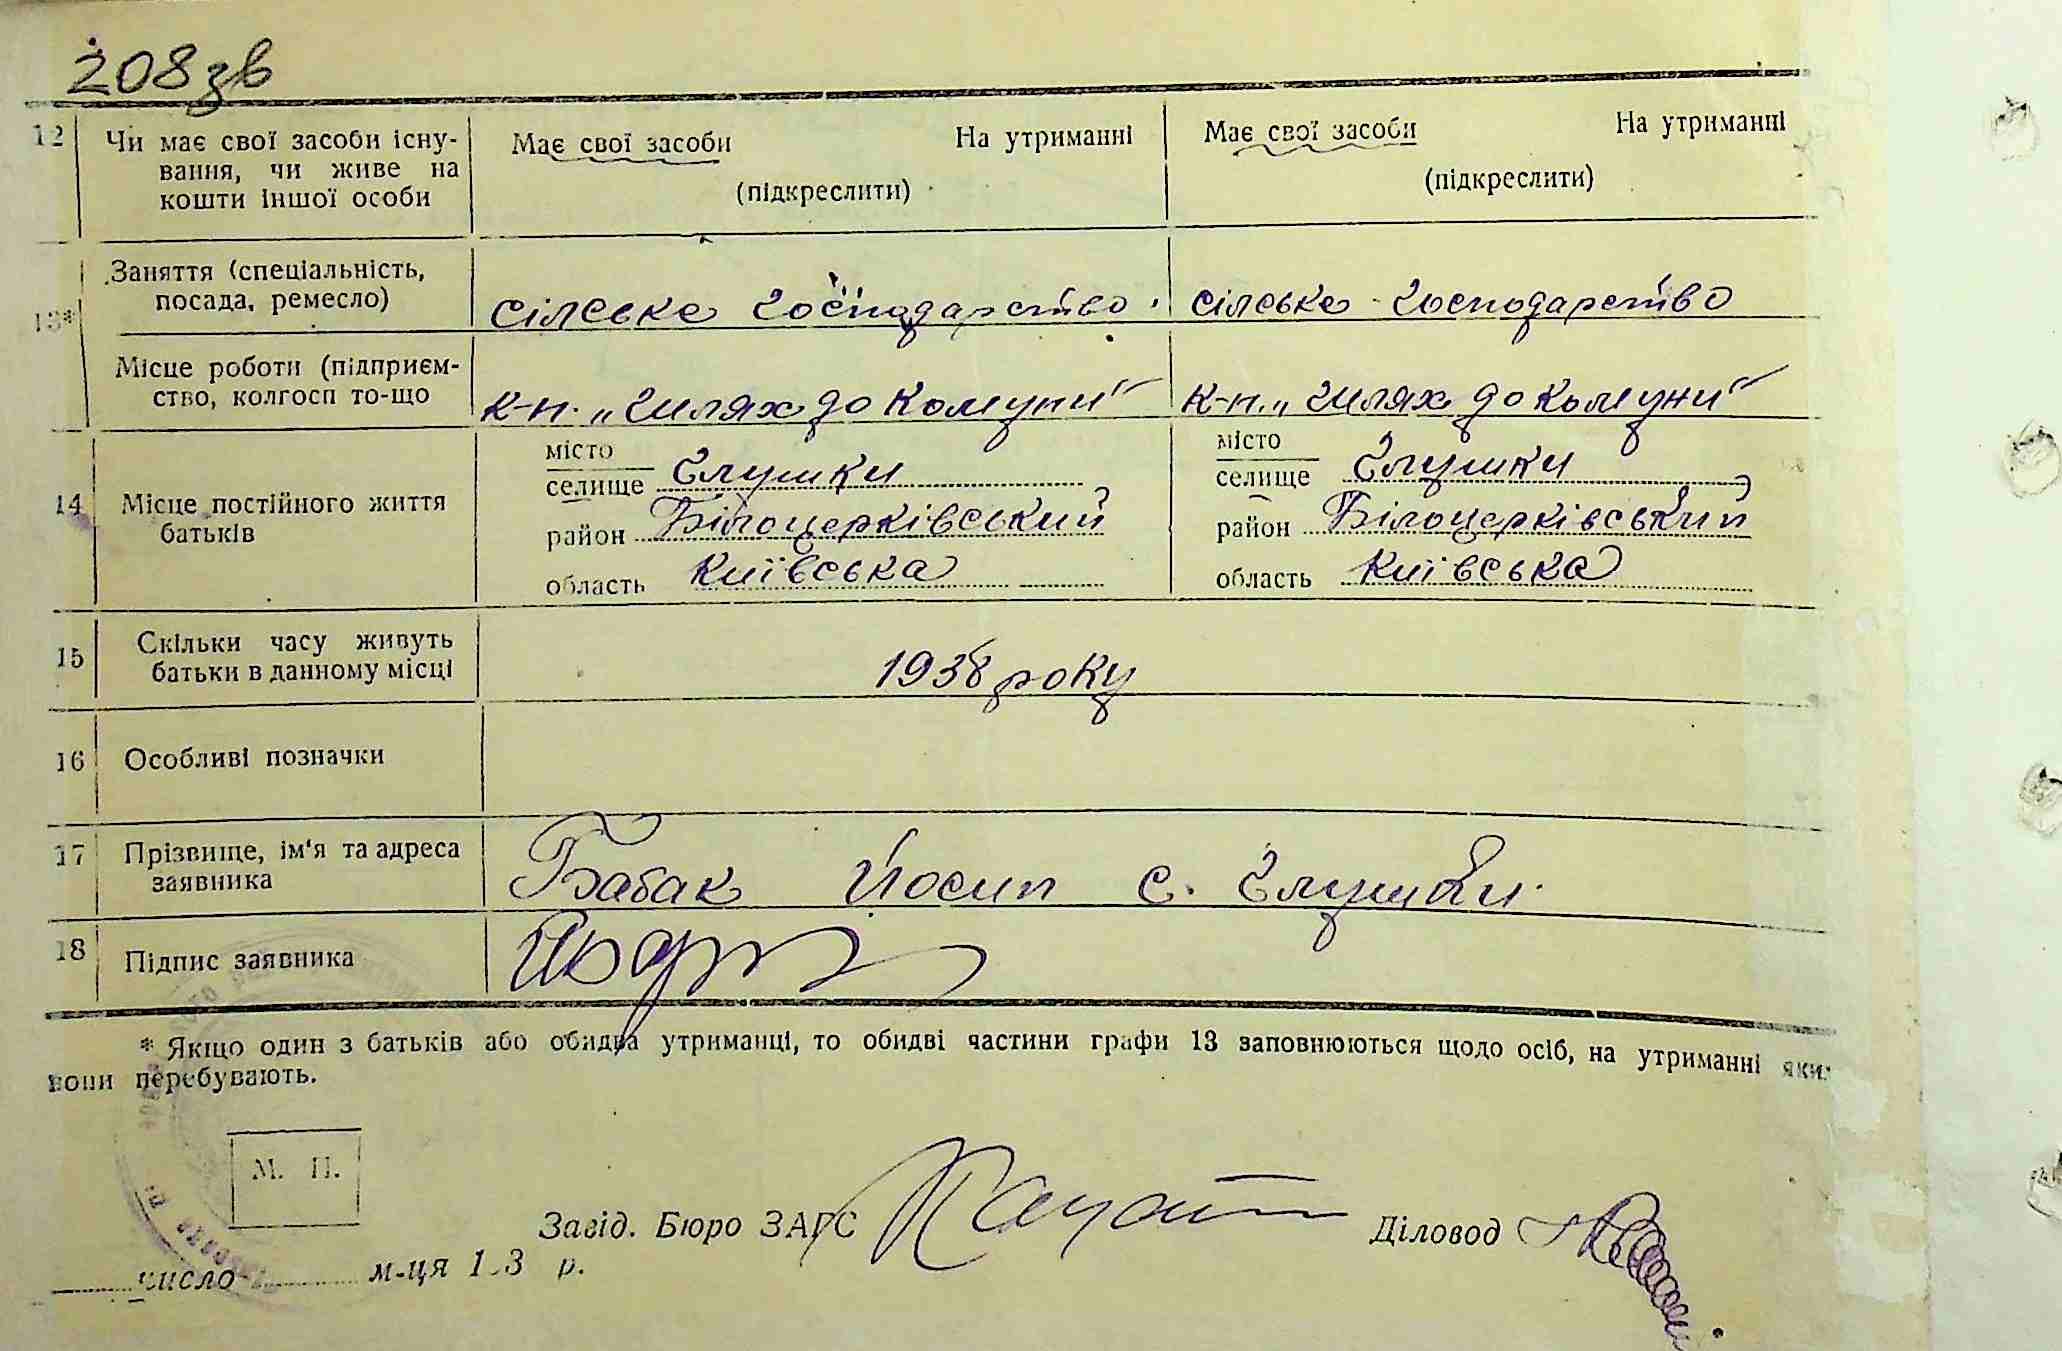 208зв
12 Чи має свої засоби існу- Має свої засоби На утриманні Має свої засоби На утриманні
вання, чи живе на (підкреслити) (підкреслити)
кошти іншої особи
13* Заняття (спеціальність,
посада, ремесло) сілське господарство. сілське господарство
Місце роботи (підприєм-
ство, колгосп то-що к-п. „Шлях до Комуни" к-п. „Шлях до Комуни"
14 Місце постійного життя
батьків
місто
селище Глушки
район Білоцерківський
область Київська
місто
селище Глушки
район Білоцерківський
область Київська
15 Скільки часу живуть
батьки в данному місці 1938 року
16 Особливі позначки
17 Прізвище, ім'я та адреса
заявника Бабак Йосип с. Глушки.
18 Підпис заявника
* Якщо один з батьків або обидва утриманці, то обидві частини графи 13 заповнюються щодо осіб, на утриманні яких
вони перебувають.
М. П.
Завід. Бюро ЗАГС Діловод
число м-ця 193 р.